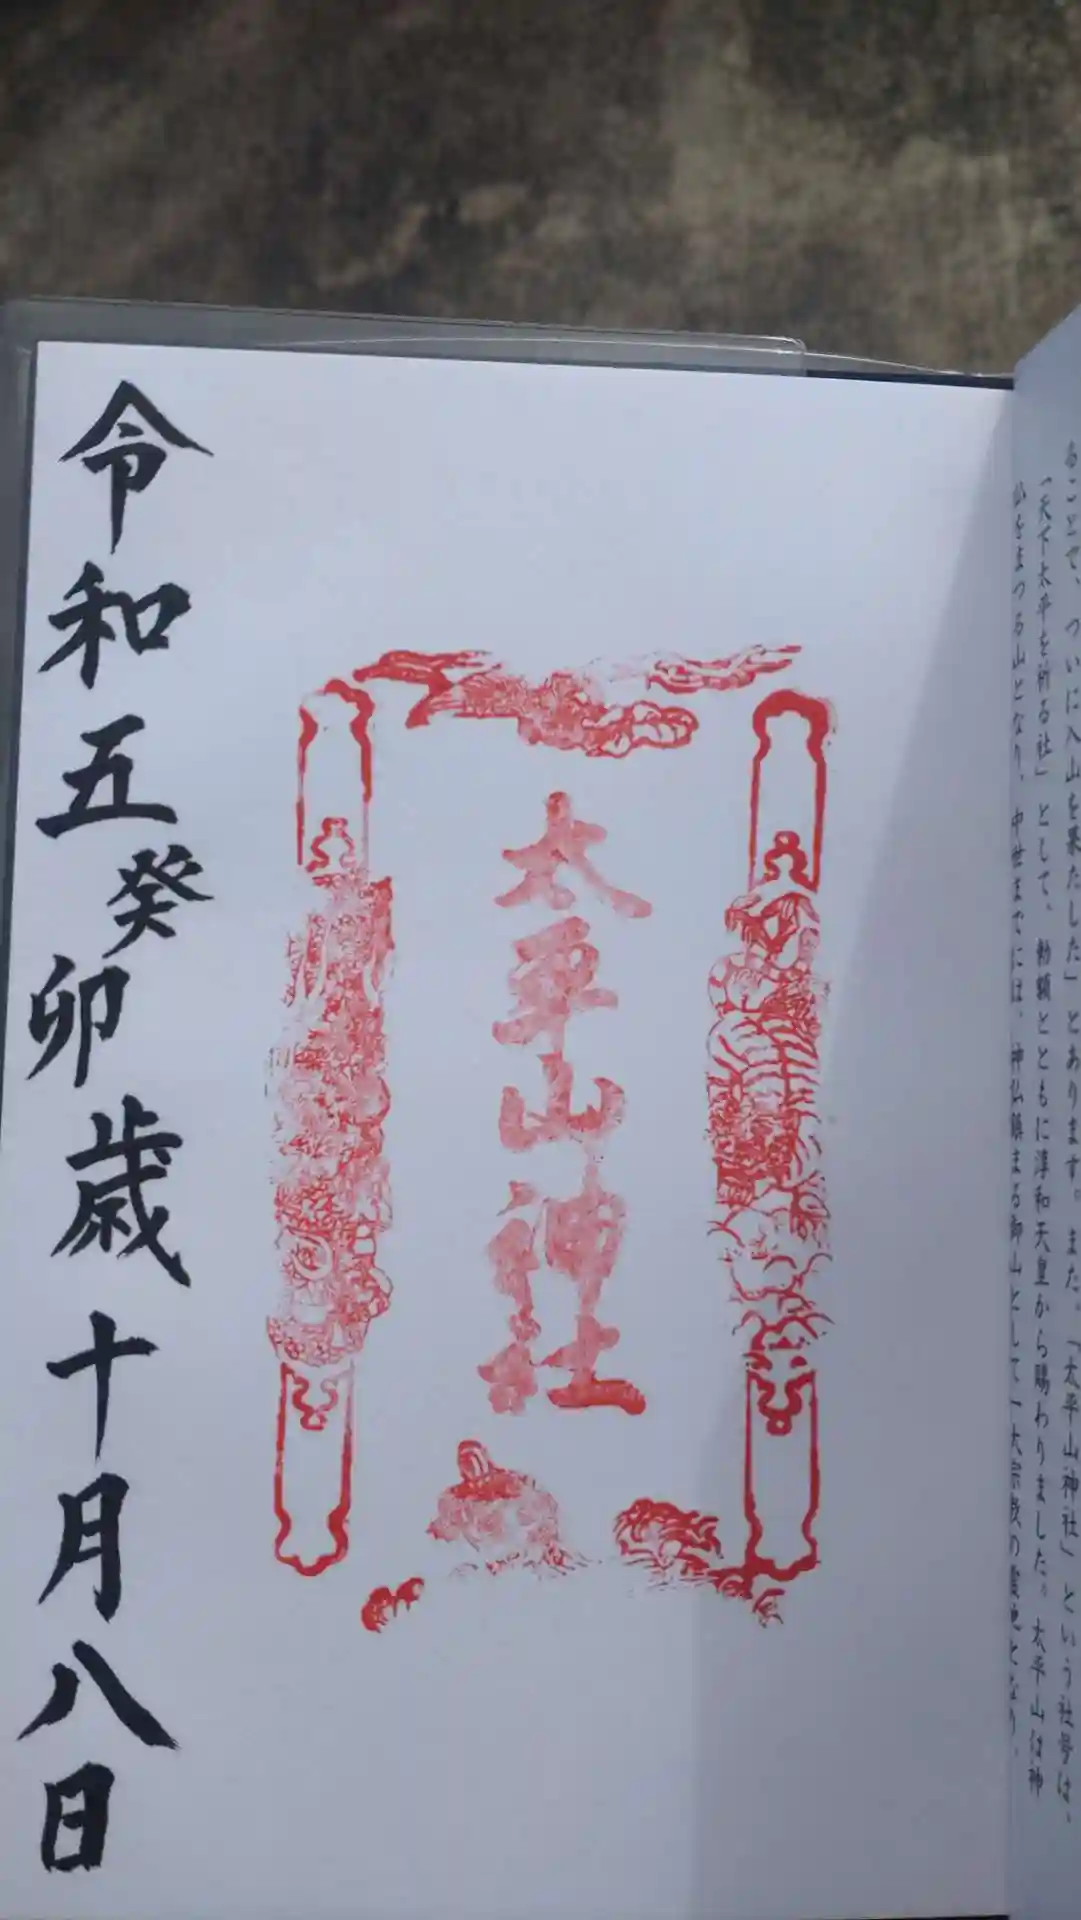 ることで、ついに入山を果たした」とあります。また、「太平山神社」という社号は、
「天下太平を祈る社」として、勅額とともに淳和天皇から賜わりました。太平山は神
仏をまつる山となり、中世までには、神仏鎮まる御山として一大宗教の霊地となり、
太平山神社
令和五癸卯歳十月八日